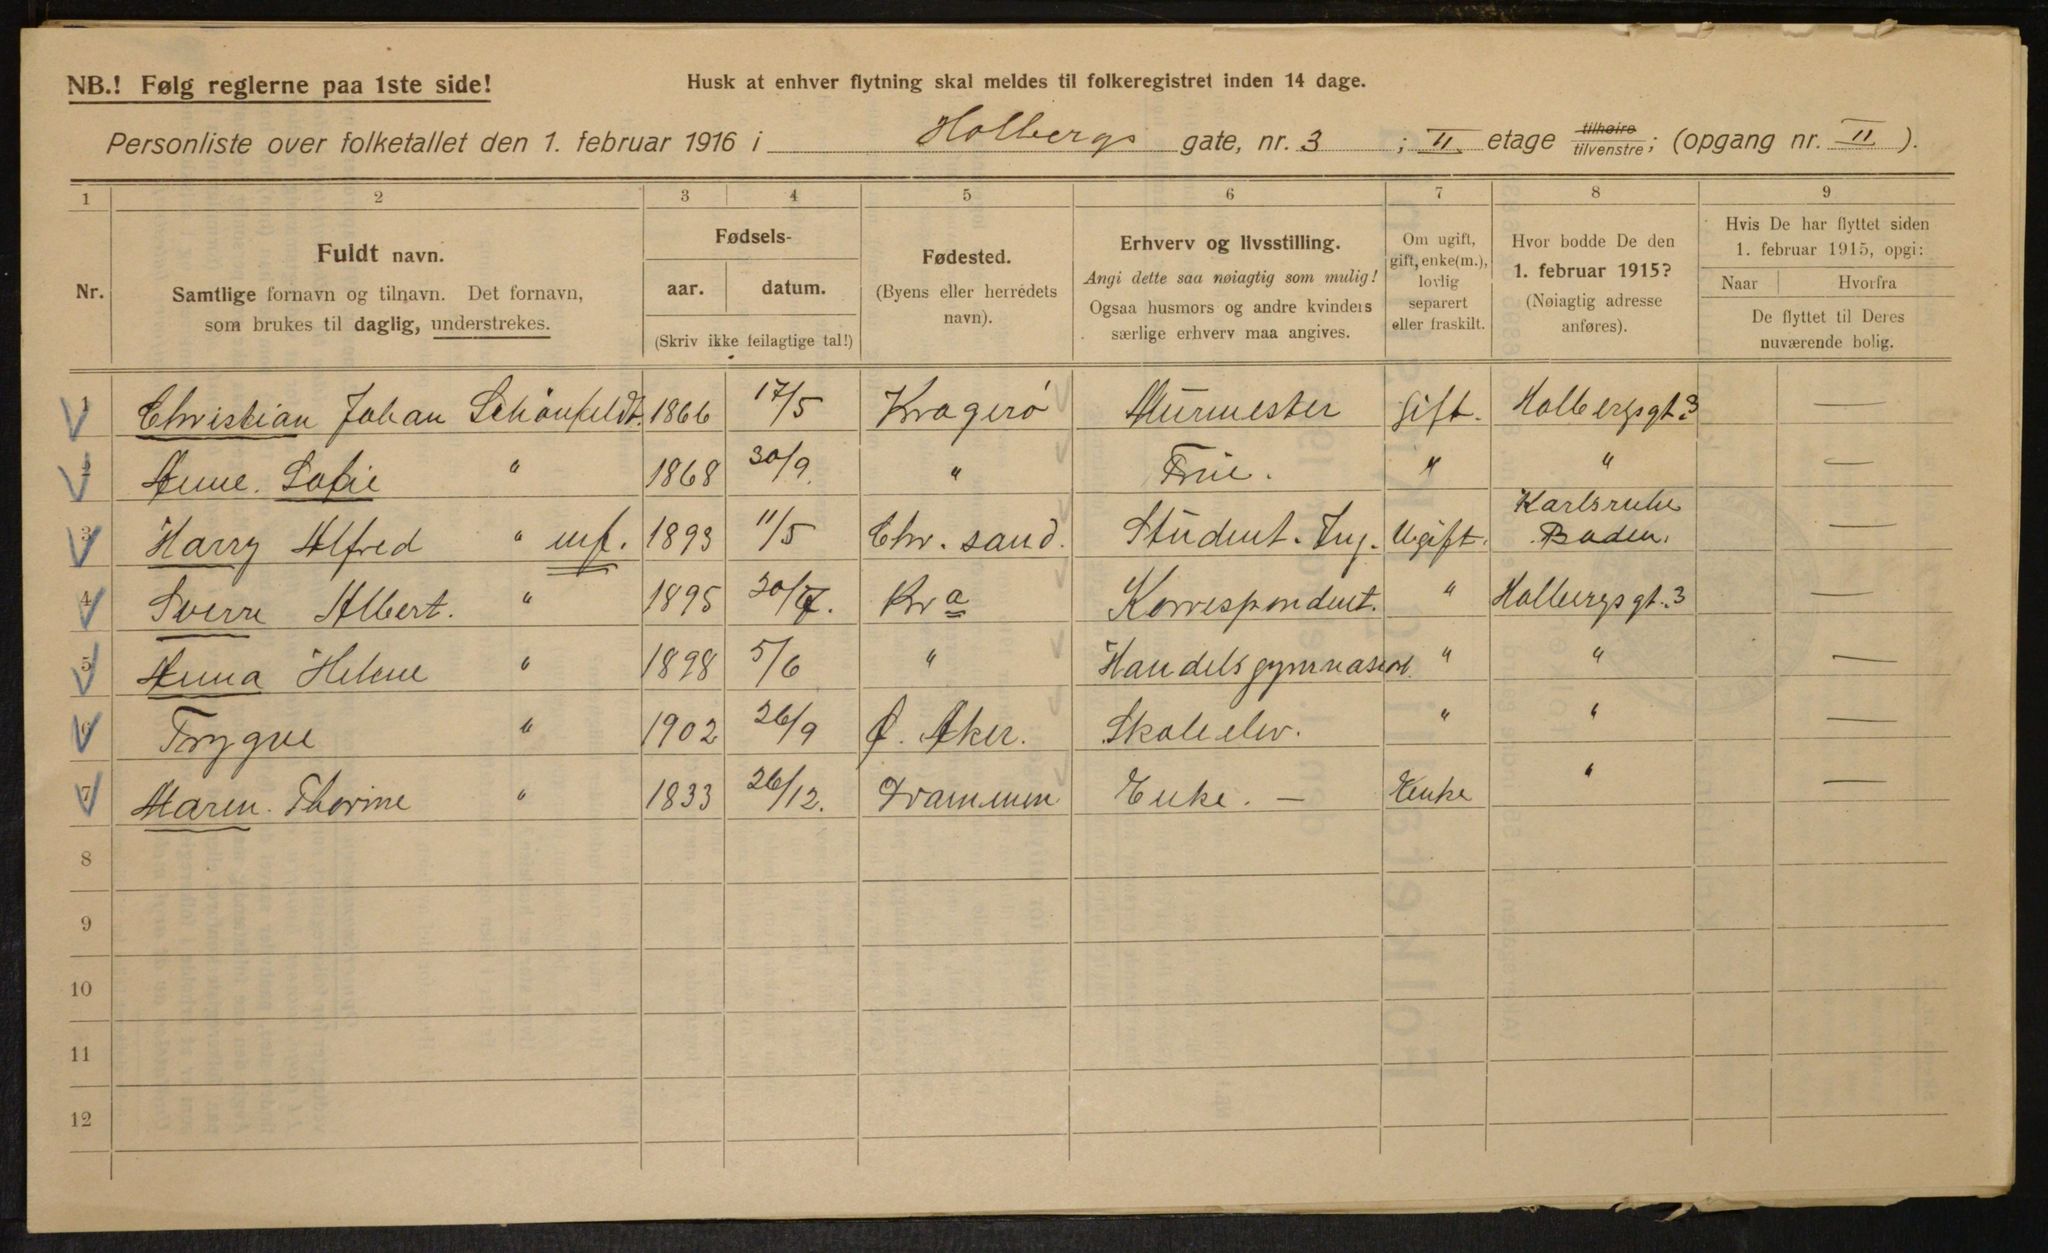 NB.! Følg reglerne paa 1ste side!
Husk at enhver flytning skal meldes til folkeregistret inden 14 dage.
Personliste over folketallet den 1. februar 1916 i Holbergs gate, nr. 3 ; II etage tilhøire tilvenstre; (opgang nr. II ).
1 2 3 4 5 6 7 8 9
Nr.
Fuldt navn.
Samtlige fornavn og tilnavn. Det fornavn,
som brukes til daglig, understrekes.
Fødsels-
aar. datum.
(Skriv ikke feilagtige tal!)
Fødested.
(Byens eller herredets
navn).
Erhverv og livsstilling.
Angi dette saa nøiagtig som mulig!
Ogsaa husmors og andre kvinders
særlige erhverv maa angives.
Om ugift,
gift, enke(m.),
lovlig
separert
eller fraskilt.
Hvor bodde De den
1. februar 1915?
(Nøiagtig adresse
anføres).
Hvis De har flyttet siden
1. februar 1915, opgi:
Naar Hvorfra
De flyttet til Deres
nuværende bolig.
1 Christian Johan Schönfeldt. 1866 17/5 Kragerö Murmester gift. Holbergsgt. 3 —
2 Anne. Sofie " 1868 30/9. " Frue. " " —
3 Harry Alfred " 1893 11/5 Chr. sand. Student. Ing. Ugift. Karlsruhe Baden. —
4 Sverre Albert. " 1895 Kra Korrespondent. " Holbergsgt. 3 —
5 Anna Helene " 1898 5/6 " Handelsgymnasium " " —
6 Trygve " 1902 26/9 Ø. Aker. Skoleelev. " " —
7 Maren. Thorine " 1833 26/12. Drammen Enke. — Enke " —
8
9
10
11
12